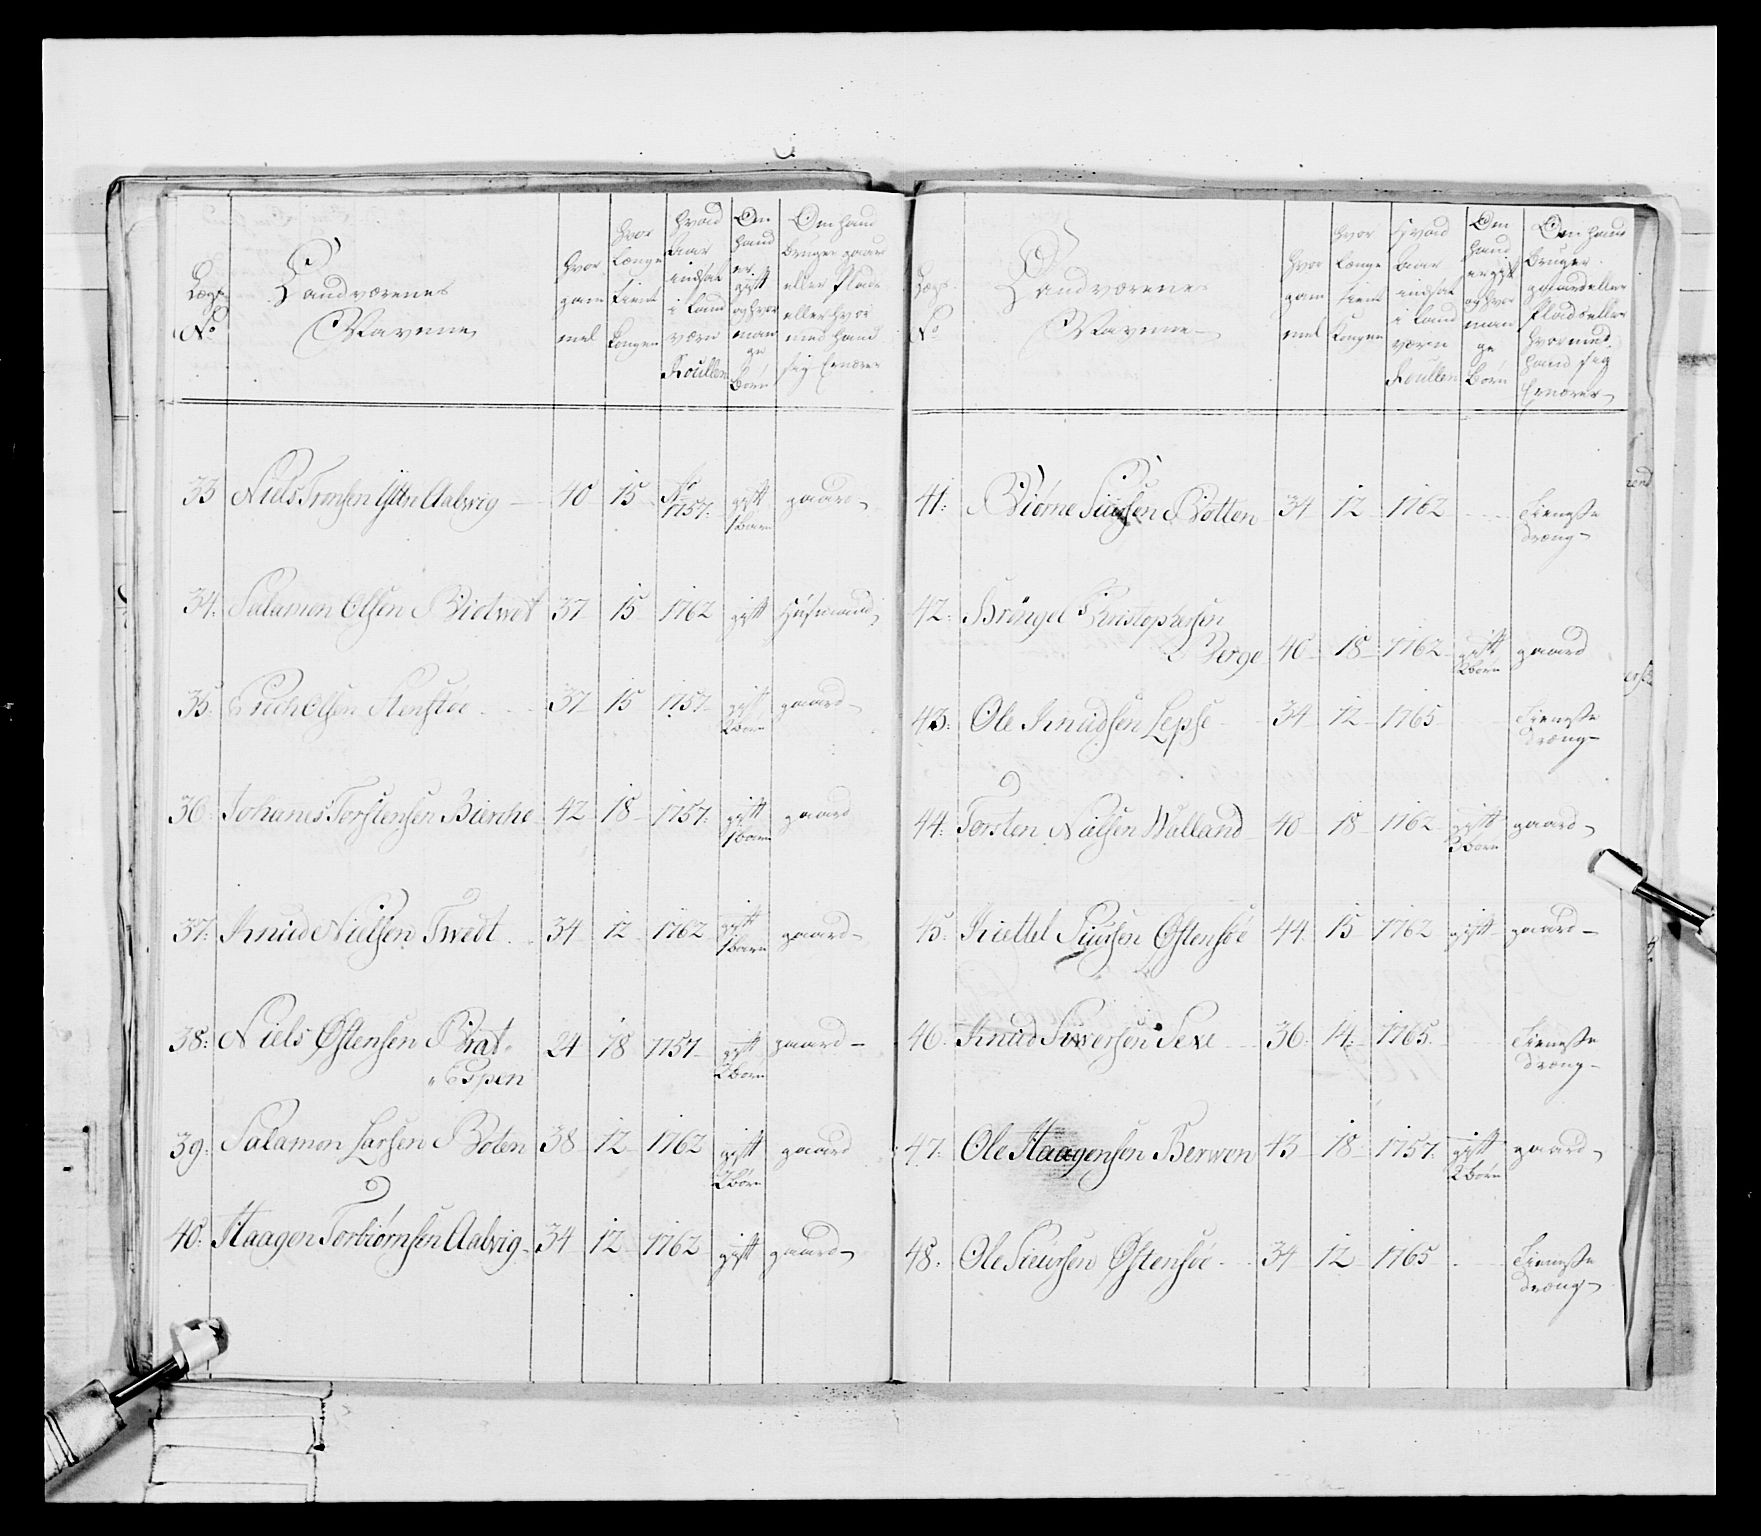 Lægs No | Landværenes Navne | hvor gam mel | hvor længe tient kongen | hvad aar indsat i Land værn Roullen | Om hand er gift og hvor man ge børn | Om hand bruger gaard eller Plads eller hvor med hand sig Ernærer
33 Niels Tronsen Ytre Aalwig 40 15 Ao 1757. gift 1 barn gaard
34. Salamon Olsen Bietwet 37 15 1762 gift Huusmand
35. Erich Olsen Stenstøe 37 15 1757 gift 2 børn gaard
36. Johanes Torstensen Bierche 42 18 1757. gift 1 barn gaard
37. Knud Nielsen Twedt 34 12 1762 gift 1 barn gaard
38: Niels Østensen Brat-
Espen 24 18 1757 gift 2 børn gaard
39. Salamon Larsen Boten 38 12 1762 gift 2 børn gaard
40. Haagen Torbiørnsen Aalvig 34 12 1762 gift gaard
Lægs No | Landværenes Navne | hvor gam mel | hvor længe tient kongen | hvad aar indsat i Land værn Roullen | Om hand er gift og hvor man ge børn | Om hand bruger gaard eller Plads eller hvor med hand sig Ernærer
41: Biørne Siursen Botten 34 12 1762 tieneste dræng
42: Brøngel Christophersen
Berge 40 18 1762 gift 2 børn gaard
43: Ole Knudsen Lepse 34 12 1765 tieneste dræng
44: Torsten Nielsen Walland 40 18 1762 gift 3 børn gaard
45: Kiettel Siursen Østensøe 44. 15 1762 gift gaard
46. Knud Siwersen Sexe 36. 14. 1765. tieneste dræng
47. Ole Haagensen Berwen 43 18 1757. gift 2 børn gaard
48. Ole Siursen Østensøe 34 12 1765 tieneste dræng